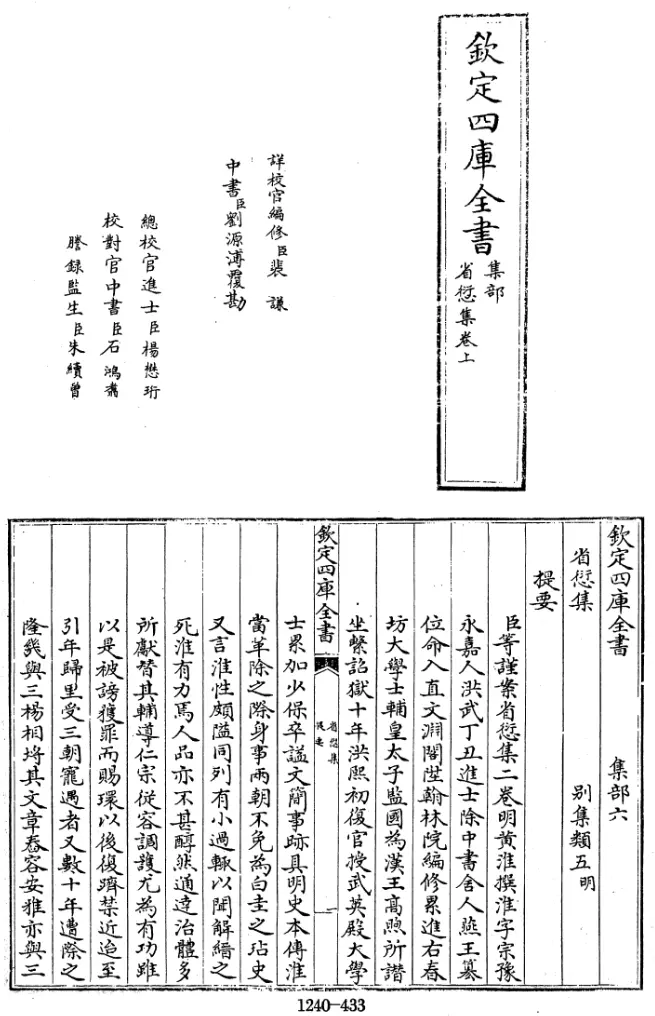 欽定四庫全書
集部
省愆集卷上
詳校官編修臣裴謙
中書臣劉源溥覆勘
總校官進士臣楊懋珩
校對官中書臣石鴻翥
謄錄監生臣朱續曾
欽定四庫全書 集部六
省愆集 别集類五明
提要
臣等謹案省愆集二卷明黃淮撰淮字宗豫
永嘉人洪武丁丑進士除中書舍人燕王簒
位命入直文淵閣陞翰林院編修累進右春
坊大學士輔皇太子監國為漢王高煦所譖
坐繫詔獄十年洪熙初復官授武英殿大學
欽定四庫全書
省愆集
提要
一
士累加少保卒諡文簡事跡具明史本傳淮
當革除之際身事兩朝不免為白圭之玷史
又言淮性頗隘同列有小過輒以聞解縉之
死淮有力焉人品亦不甚醇然通達治體多
所獻替其輔導仁宗從容調護尤為有功雖
以是被謗獲罪而賜環以後復躋禁近迨至
引年歸里受三朝寵遇者又數十年遭際之
隆幾與三楊相埒其文章舂容安雅亦與三
1240-433